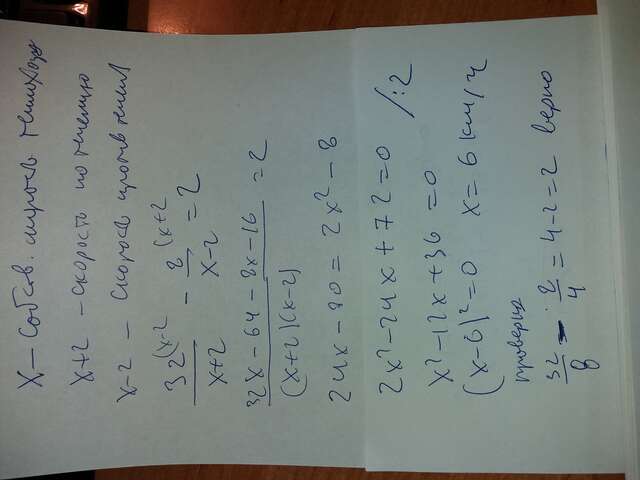 X – собств. скорость теплохода
X+2 – скорость по течению
X-2 – скорость против течения
32(x-2 / x+2 - 8(x+2 / x-2 = 2
32x - 64 - 8x - 16 / (x+2)(x-2) = 2
24x - 80 = 2x² - 8
2x² - 24x + 72 = 0 /:2
x² - 12x + 36 = 0
(x-6)² = 0 x = 6 км/ч
проверка
32/8 - 8/4 = 4-2=2 верно